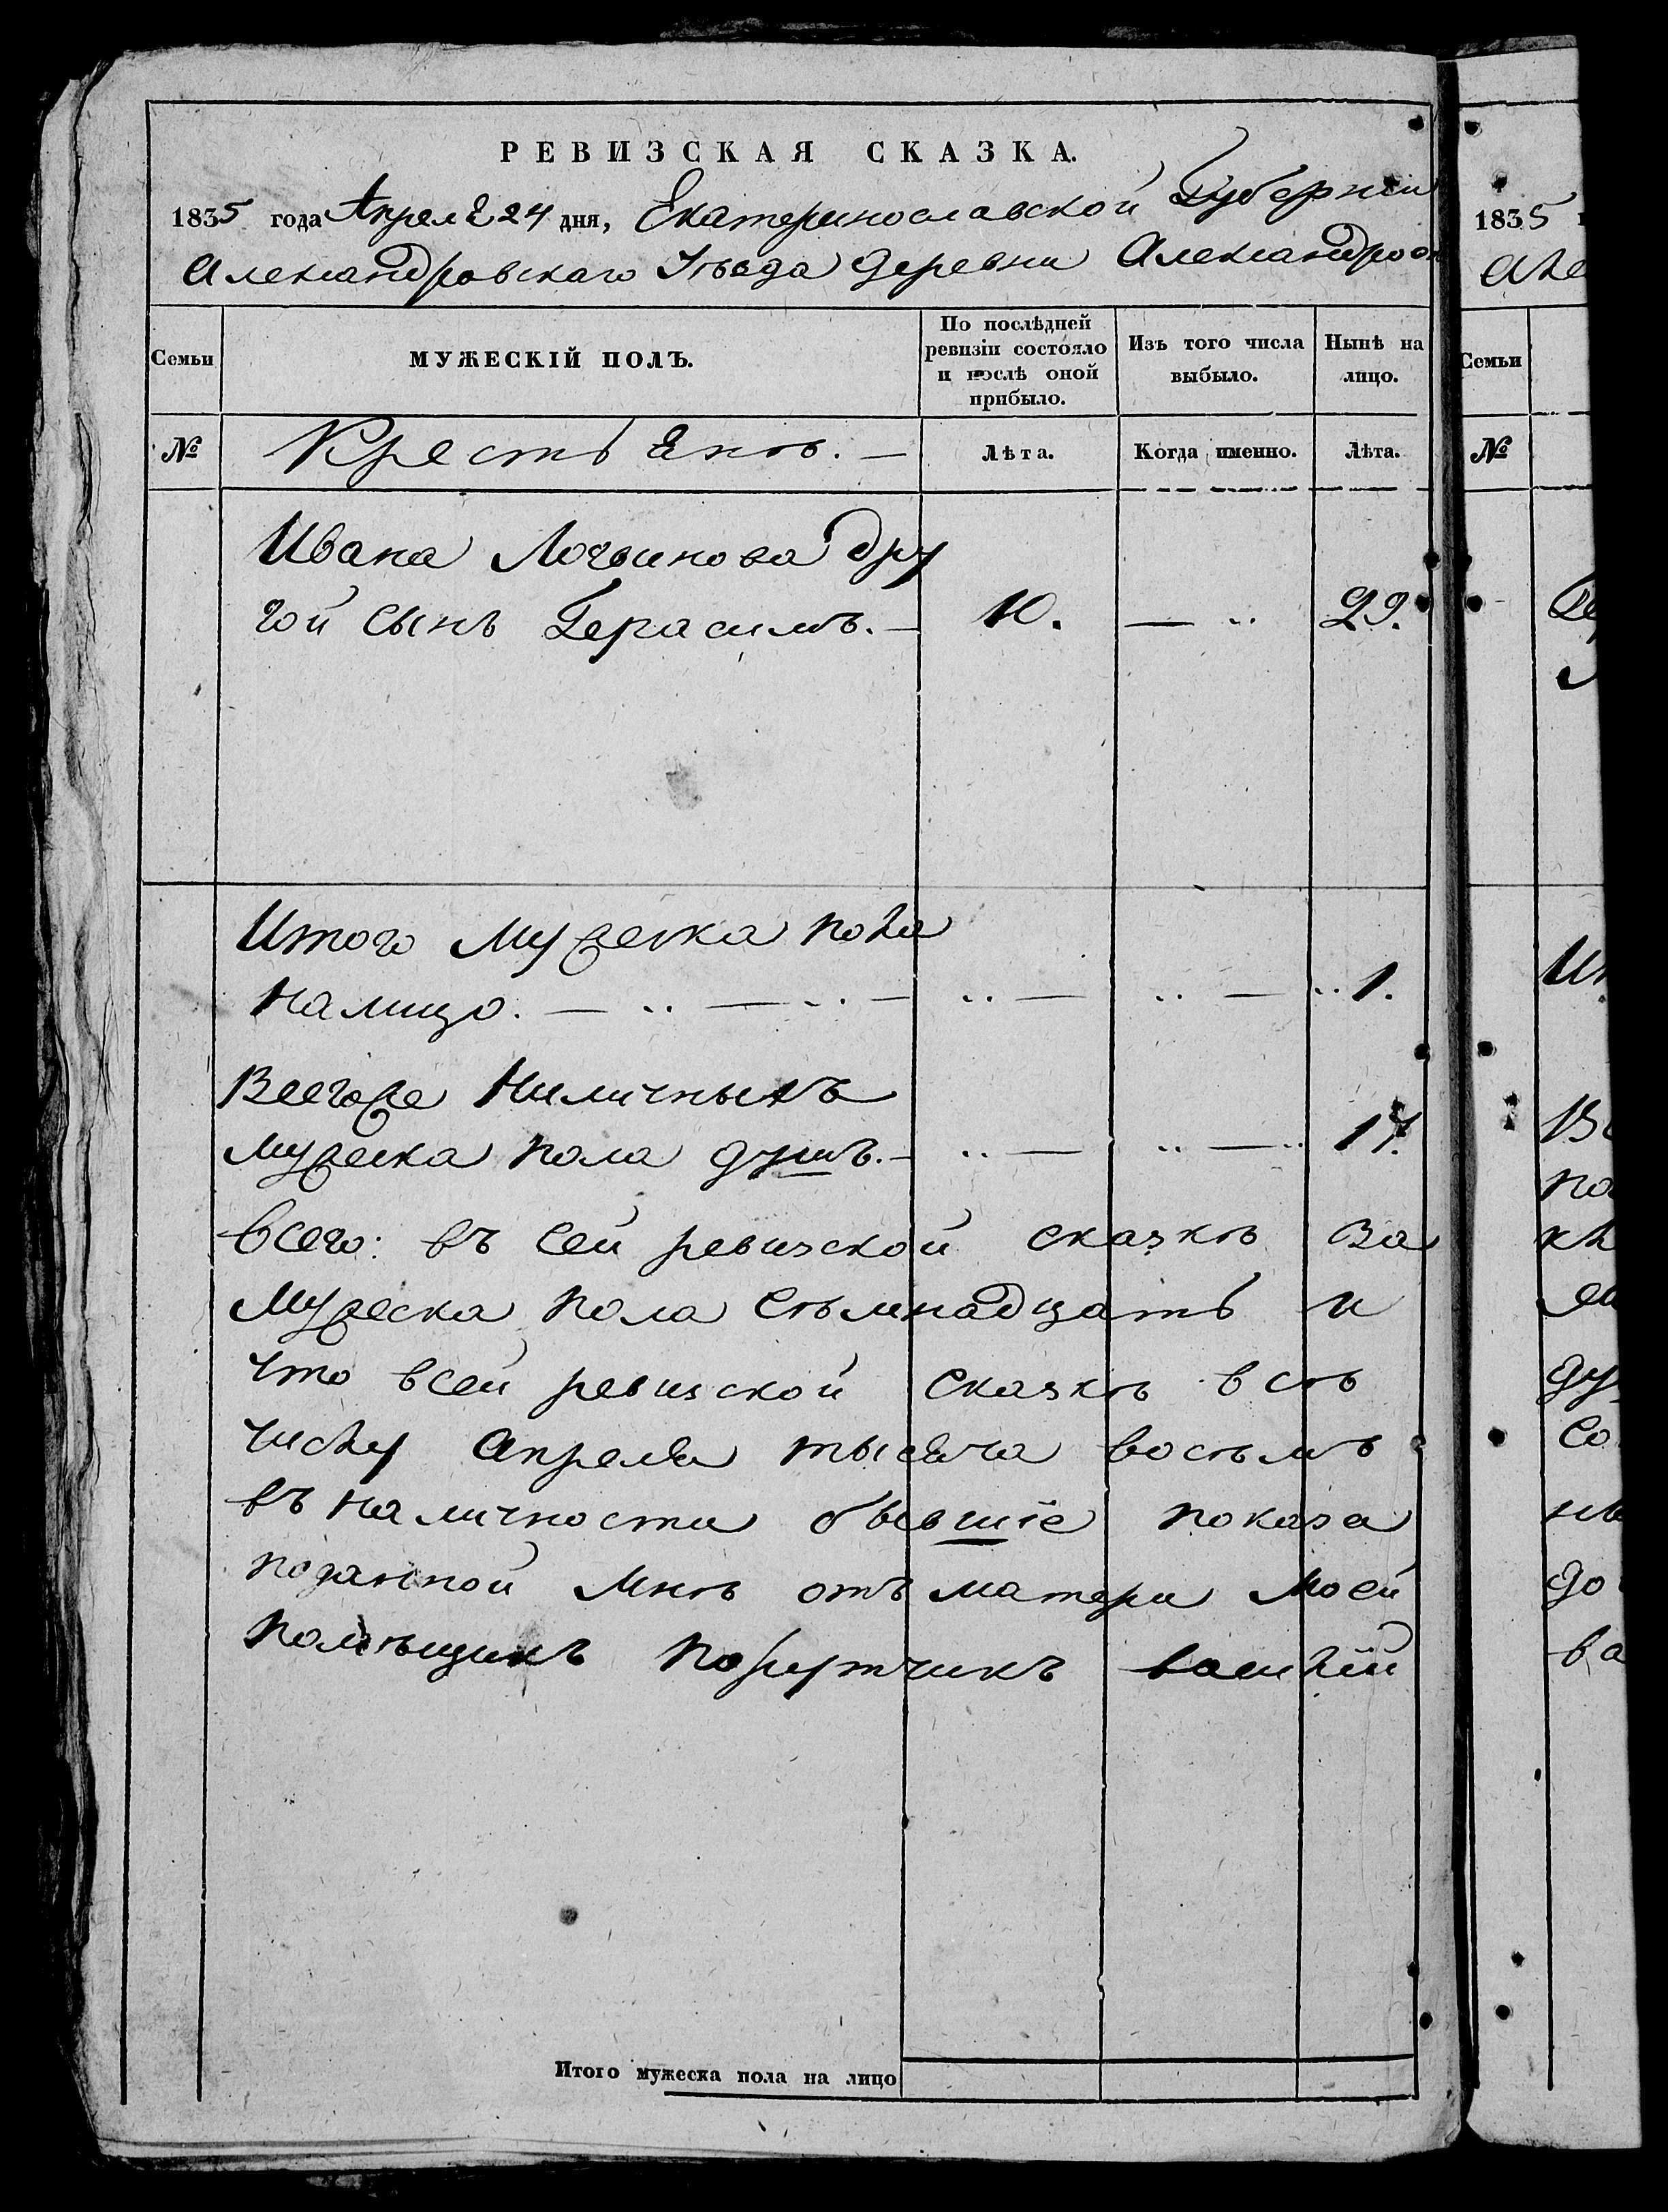 РЕВИЗСКАЯ СКАЗКА.
1835 года Апреля 24 дня, Екатеринославской Губерніи
Александровскаго Уѣзда деревни Александров
Семьи
МУЖЕСКІЙ ПОЛЪ.
По послѣдней ревизіи состояло и послѣ оной прибыло.
Изъ того числа выбыло.
Нынѣ на лицо.
№
Крестьянъ. —
Лѣта.
Когда именно.
Лѣта.
Ивана Логвинова дру
гой сынъ Герасимъ. — 10. — .. 29.
Итого мужеска пола
на лицо. — .. — .. — .. — .. — .. 1.
Всегоже Наличныхъ
мужеска пола душъ. — .. — .. — .. 17.
всего: въ сей ревизской сказкѣ За
мужеска пола сѣмнадцать и
что всей ревизской сказкѣ всѣ
числу Апреля тысяча восѣмъ
въ наличности бывшіе показа
поданной мнѣ отъ матери моей
помѣщикъ Порутчикъ Василій
Итого мужеска пола на лицо
1835
Але
Семьи
№
Ит
Вс
по
ду
со
до
ва